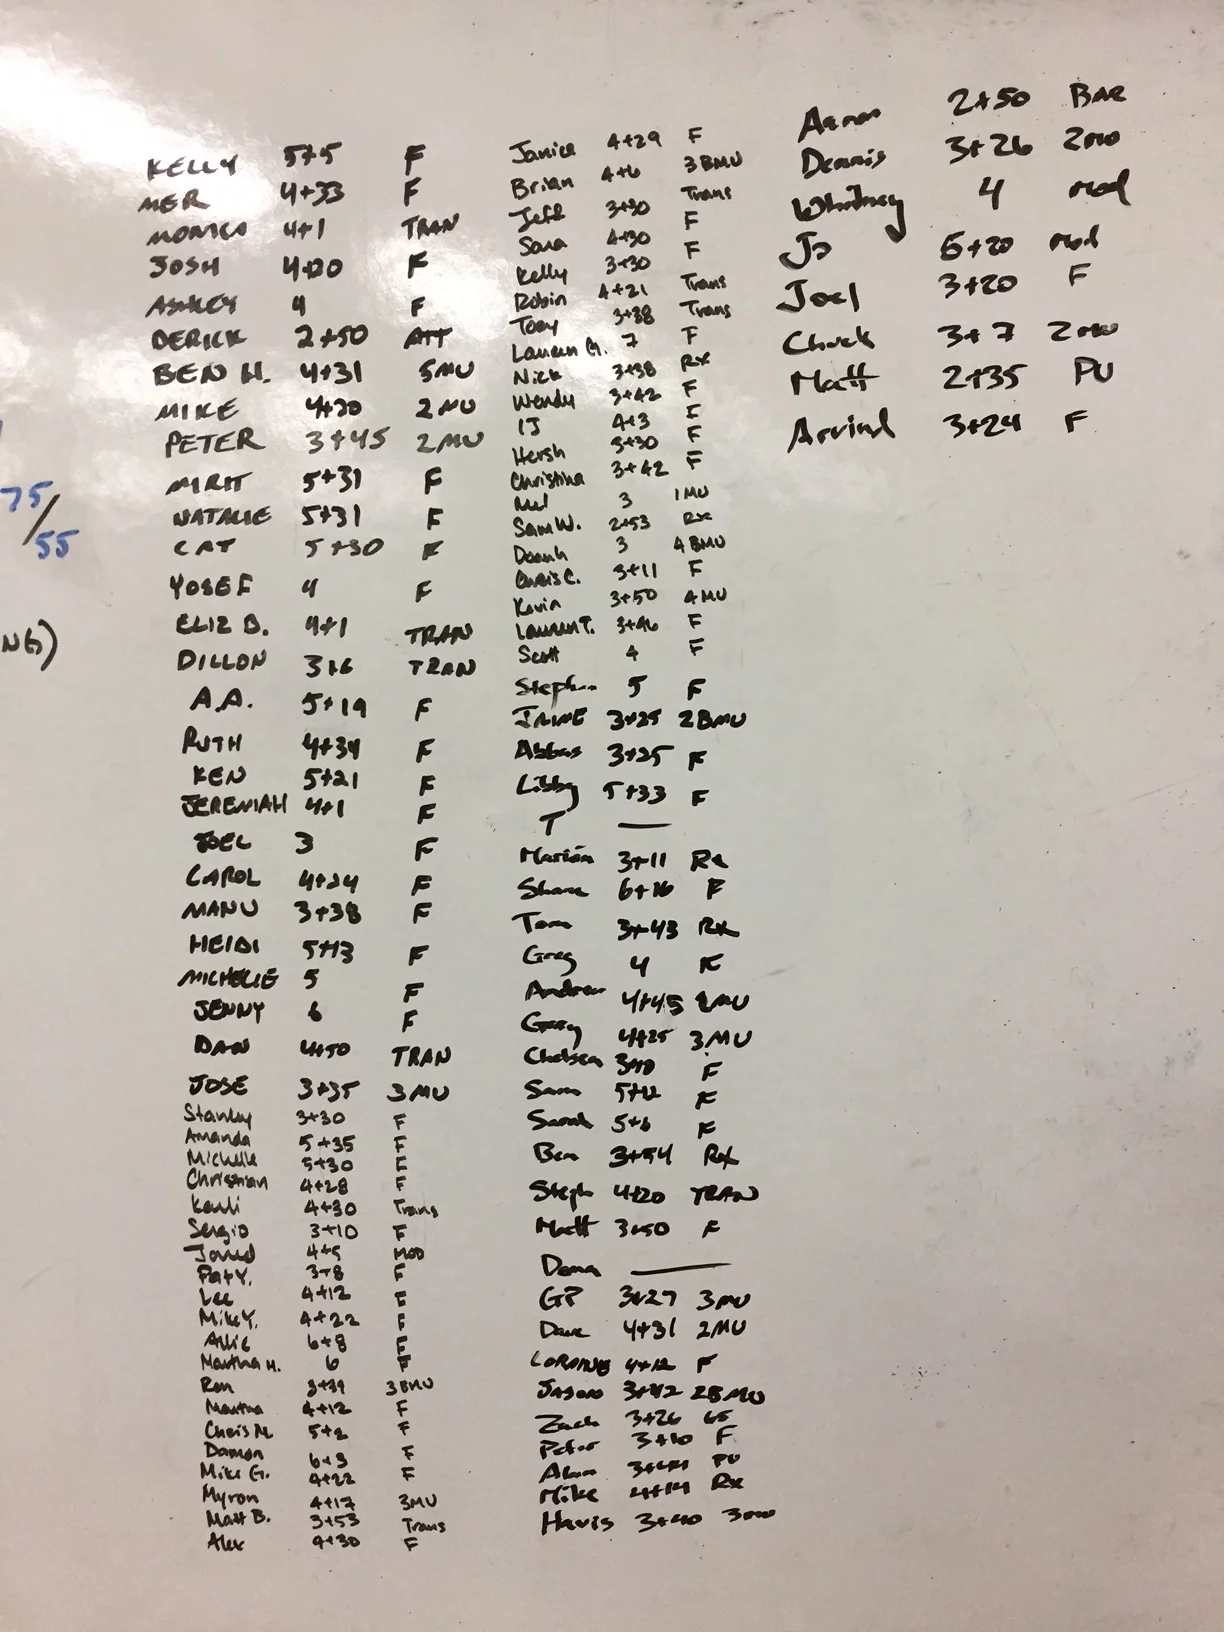 KELLY 5+5 F
MER 4+33 F
MONICA 4+1 TRAN
JOSH 4+20 F
ASHLEY 4 F
DERICK 2+50 ATT
BEN H. 4+31 5MU
MIKE 4+20 2MU
PETER 3+45 2MU
MIRIT 5+31 F
NATALIE 5+31 F
CAT 5+30 F
YOSEF 4 F
ELIZ B. 4+1 TRAN
DILLON 3+6 TRAN
A.A. 5+19 F
RUTH 4+34 F
KEN 5+21 F
JEREMIAH 4+1 F
JOEL 3 F
CAROL 4+24 F
MANU 3+38 F
HEIDI 5+13 F
MICHELLE 5 F
JENNY 6 F
DAN 4+50 TRAN
JOSE 3+35 3MU
Stanley 3+30 F
Amanda 5+35 F
Michelle 5+30 F
Christian 4+28 F
Kauli 4+30 Trans
Sergio 3+10 F
Jared 4+5 MOD
Pat Y. 3+8 F
Lee 4+12 F
Mike Y. 4+22 F
Allie 6+8 F
Martha H. 6 F
Ron 3+39 3BMU
Martha 4+12 F
Chris M. 5+2 F
Damon 6+3 F
Mike G. 4+22 F
Myron 4+17 3MU
Matt B. 3+53 Trans
Alex 4+30 F
Janice 4+29 F
Brian 4+6 3BMU
Jeff 3+30 Trans
Sara 4+30 F
Kelly 3+30 F
Robin 4+21 Trans
Tony 3+38 Trans
Lauren G. 7 F
Nick 3+38 Rx
Wendy 3+42 F
IJ 4+3 F
Hersh 3+30 F
Christina 3+42 F
Mel 3 1MU
Sam W. 2+53 Rx
Doanh 3 4BMU
Chris C. 3+11 F
Kevin 3+50 4MU
Lauren T. 3+46 F
Scott 4 F
Steph 5 F
JAIME 3+25 2BMU
Abbas 3+25 F
Libby 5+33 F
T —
Marion 3+11 Rx
Shane 6+16 F
Tom 3+43 RX
Greg 4 F
Andrew 4+45 2MU
Gary 4+25 3MU
Chelsea F
Sam 5+12 F
Sarah 5+6 F
Ben 3+54 RX
Steph 4+20 TRAN
Matt 3+50 F
Dema —
GP 3+27 3MU
Dave 4+31 2MU
LORAINE 4+12 F
Jason 3+42 2BMU
Zach 3+26 65
Peter 3+10 F
Alan 3+44 PU
Mike 4+14 Rx
Havis 3+40 3mu
Aaron 2+50 BAR
Dennis 3+26 2mu
Whitney 4 mod
Jo 5+20 mod
Joel 3+20 F
Chuck 3+7 2mu
Matt 2+35 PU
Arvind 3+24 F
75/55
NG)